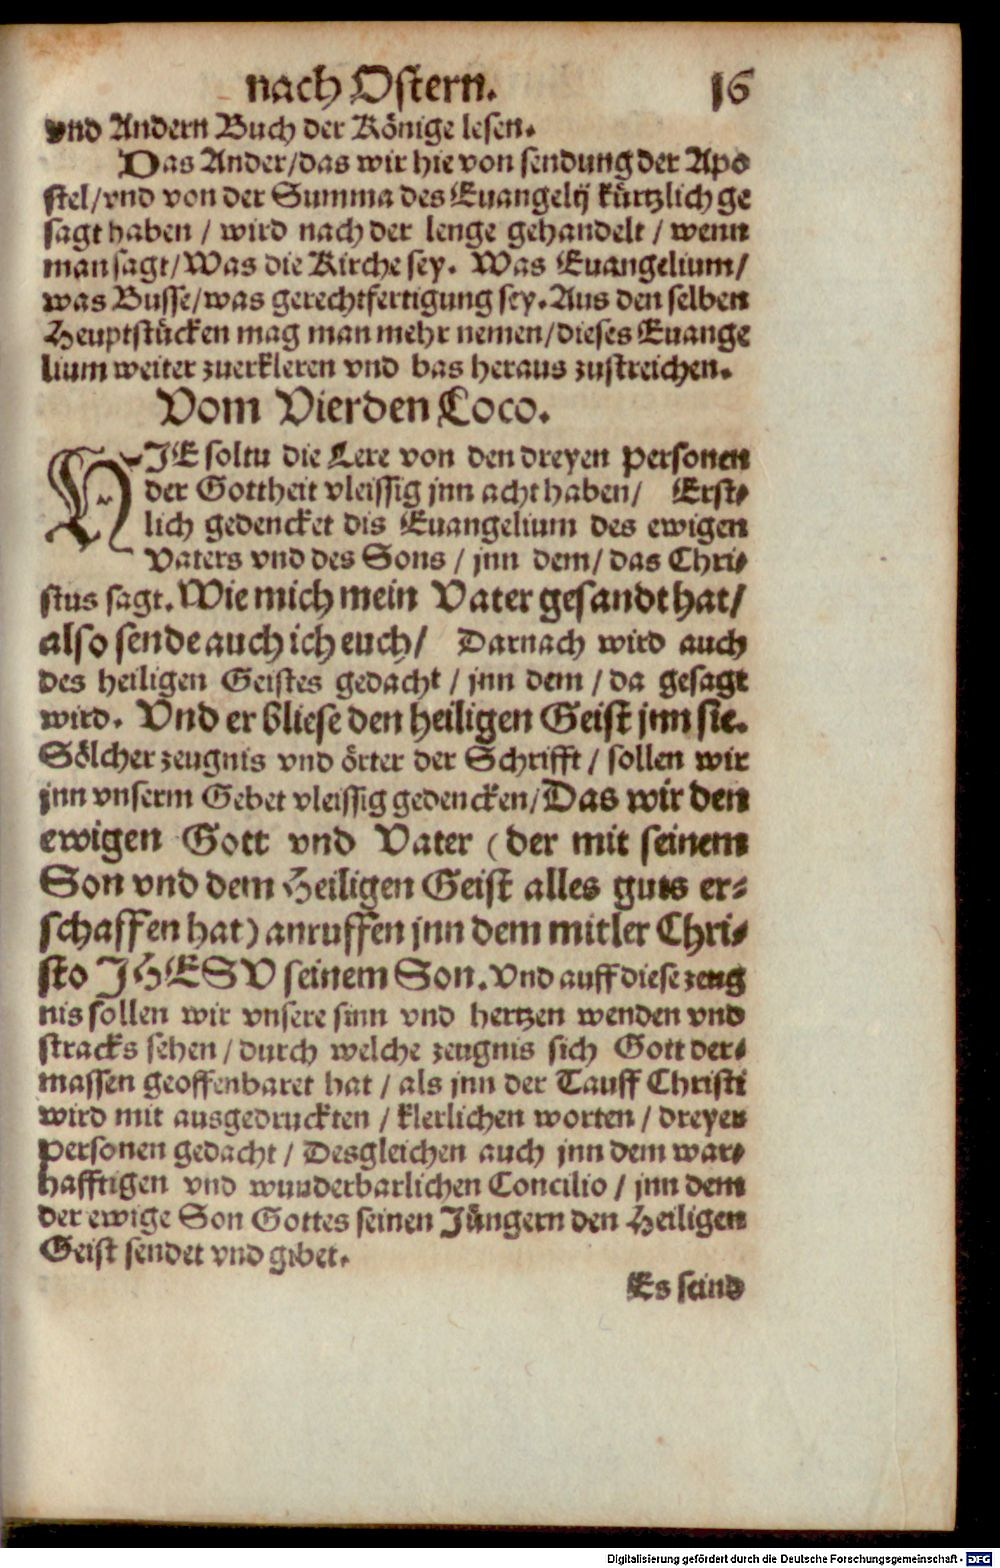 nach Ostern. 16
vnd Andern Buch der Könige lesen.
Das Ander/das wir hie von sendung der Apo
stel/vnd von der Summa des Euangelij kürtzlich ge
sagt haben / wird nach der lenge gehandelt / wenn
man sagt/Was die Kirche sey. Was Euangelium/
was Busse/was gerechtfertigung sey. Aus den selben
Heuptstücken mag man mehr nemen/dieses Euange
lium weiter zuerkleren vnd bas heraus zustreichen.
Vom Vierden Loco.
HJE soltu die Lere von den dreyen Personen
der Gottheit vleissig jnn acht haben/ Erst⸗
lich gedencket dis Euangelium des ewigen
Vaters vnd des Sons / jnn dem/ das Chri⸗
stus sagt. Wie mich mein Vater gesandt hat/
also sende auch ich euch/ Darnach wird auch
des heiligen Geistes gedacht / jnn dem / da gesagt
wird. Vnd er bliese den heiligen Geist jnn sie.
Sölcher zeugnis vnd örter der Schrifft / sollen wir
jnn vnserm Gebet vleissig gedencken/Das wir den
ewigen Gott vnd Vater (der mit seinem
Son vnd dem Heiligen Geist alles guts er⸗
schaffen hat) anruffen jnn dem mitler Chri⸗
sto JHESV seinem Son. Vnd auff diese zeug
nis sollen wir vnsere sinn vnd hertzen wenden vnd
stracks sehen / durch welche zeugnis sich Gott der⸗
massen geoffenbaret hat / als jnn der Tauff Christi
wird mit ausgedruckten / klerlichen worten / dreyer
Personen gedacht / Desgleichen auch jnn dem war⸗
hafftigen vnd wunderbarlichen Concilio / jnn dem
der ewige Son Gottes seinen Jüngern den Heiligen
Geist sendet vnd gibet.
Es seind
Digitalisierung gefördert durch die Deutsche Forschungsgemeinschaft - DFG